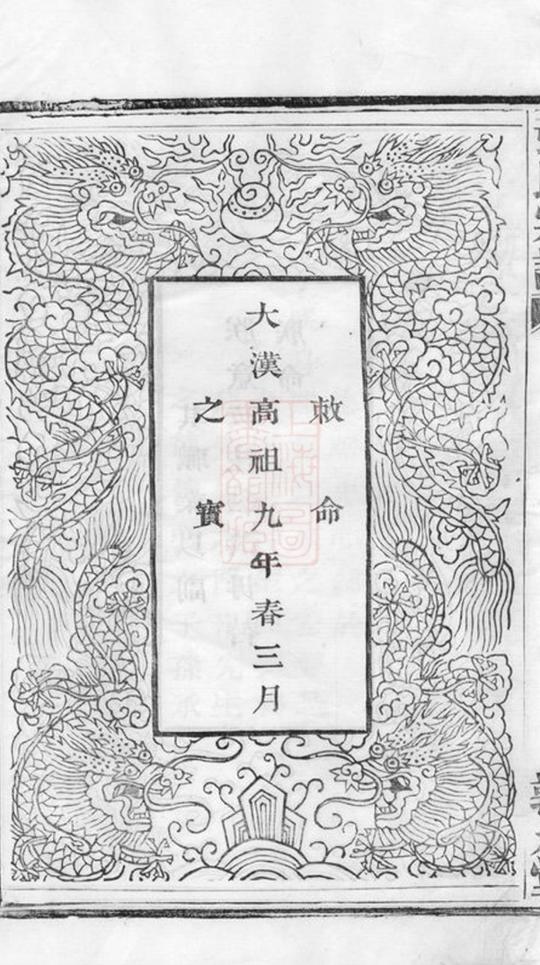 敕命
大漢高祖九年春三月
之寶